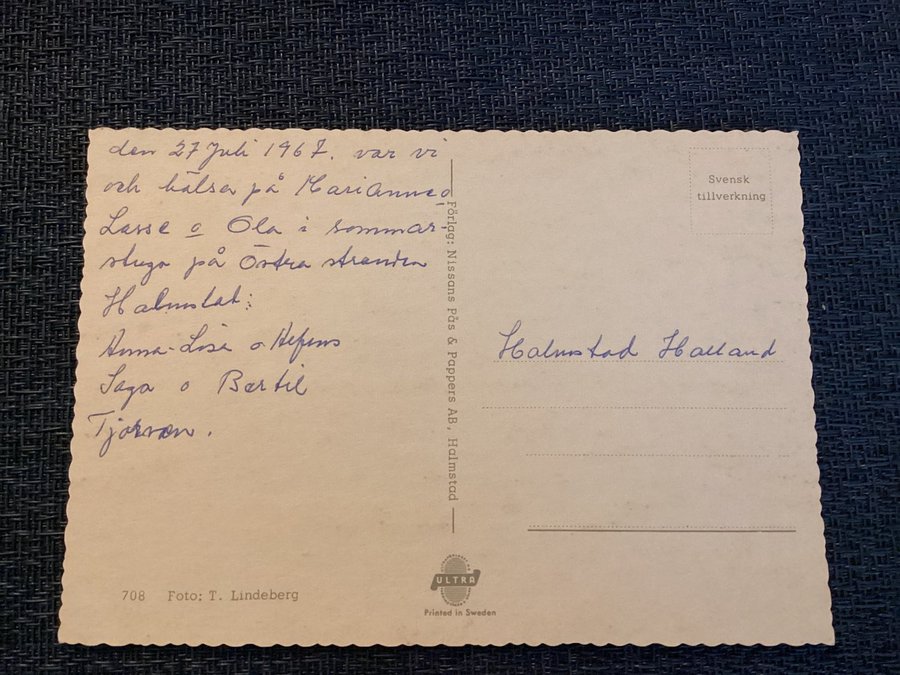 den 27 Juli 1967. var vi
och hälsa på Marianne o
Lasse o Ola i sommar-
stuga på Östra stranden
Halmstat:
Anna-Lisa o
Saga o Bertil
Tjorven.
Förlag: Nissans Pås & Pappers AB, Halmstad
Svensk
tillverkning
Halmstad Halland
708 Foto: T. Lindeberg
ULTRA
Printed in Sweden